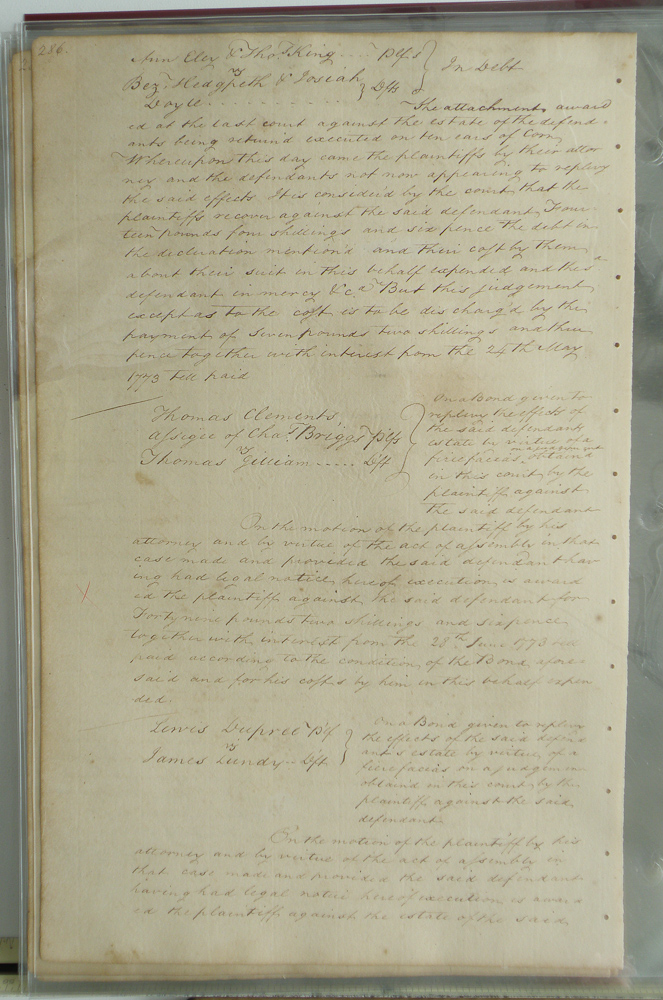 286.
Ann Eley & Tho.s King .... Plfs
Bez.a Hedgpeth & Josiah
vs
Doyle .......... Dfts
In Debt
The attachment award
ed at the last court against the estate of the defend
ants being return'd executed on ten ears of Corn
Whereupon this day came the plaintiffs by their attor
ney and the defendants not now appearing to replevy
the said effects. It is consider'd by the court that the
plaintiffs recover against the said defendant Four
teen pounds four shillings and six pence the debt in
the declaration mention'd and their cost by them
about their suit in this behalf expended and the s.d
defendant in mercy &c.a But this judgement
except as to the cost is to be discharg'd by the
payment of Seven pounds two shillings and three
pence together with interest from the 24th May
1773 till paid
Thomas Clements
assigee of Cha.s Briggs Plfs
vs
Thomas Gilliam ..... Dft
On a Bond given to
replevy the effects of
the said defendants
estate by virtue of a
fierefacias on a judgment obtain'd
in this court by the
plaintiff against
the said defendant
On the motion of the plaintiff by his
attorney and by virtue of the act of assembly in that
case made and provided the said defendant hav
ing had legal notice hereof execution is award
ed the plaintiff against the said defendant for
Forty nine pounds two shillings and sixpence
together with interest from the 28th June 1773 till
paid according to the condition of the Bond afore
said and for his costs by him in this behalf expen
ded.
Lewis Dupree Plf
vs
James Lundy .. Dft
On a Bond given to replevy
the effects of the said defend
ant's estate by virtue of a
fierefacias on a judgment
obtain'd in this court by the
plaintiff against the said
defendant
On the motion of the plaintiff by his
attorney and by virtue of the act of assembly in
that case made and provided the said defendant
having had legal notice hereof execution is award
ed the plaintiff against the estate of the said